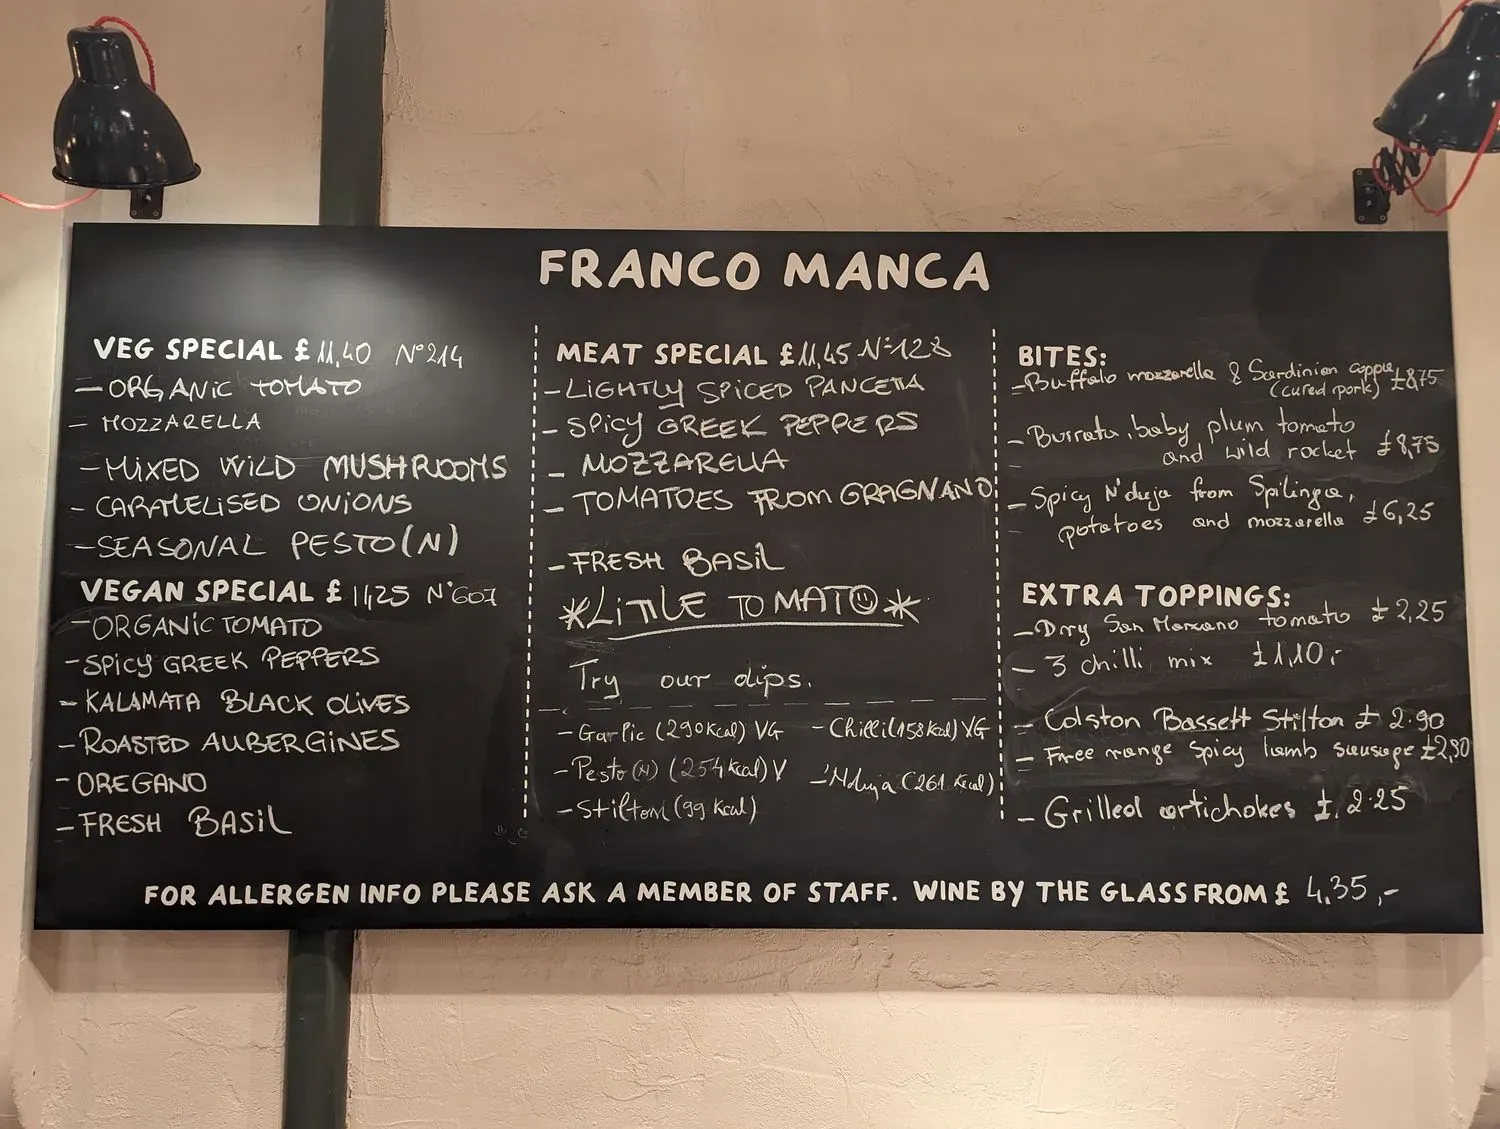 FRANCO MANCA
VEG SPECIAL £ 11,40 N°214
- ORGANIC TOMATO
- MOZZARELLA
- MIXED WILD MUSHROOMS
- CARAMELISED ONIONS
- SEASONAL PESTO (N)
VEGAN SPECIAL £ 11,25 N°607
- ORGANIC TOMATO
- SPICY GREEK PEPPERS
- KALAMATA BLACK OLIVES
- ROASTED AUBERGINES
- OREGANO
- FRESH BASIL
MEAT SPECIAL £11,45 N°128
- LIGHTLY SPICED PANCETTA
- SPICY GREEK PEPPERS
- MOZZARELLA
- TOMATOES FROM GRAGNANO
- FRESH BASIL
*LITTLE TOMATO*
Try our dips.
- Garlic (290kcal) VG
- Chilli (158kcal) VG
- Pesto (N) (254kcal) V
- 'Nduja (261 kcal)
- Stilton (99 kcal)
BITES:
- Buffalo mozzarella & Sardinian coppa
(cured pork) £8,75
- Burrata, baby plum tomato
and wild rocket £8,75
- Spicy N'duja from Spilinga,
potatoes and mozzarella £6,25
EXTRA TOPPINGS:
- Dry San Marzano tomato £2,25
- 3 chilli mix £1,10
- Colston Bassett Stilton £2.90
- Free range spicy lamb sausage £2,90
- Grilled artichokes £2.25
FOR ALLERGEN INFO PLEASE ASK A MEMBER OF STAFF. WINE BY THE GLASS FROM £ 4,35,-